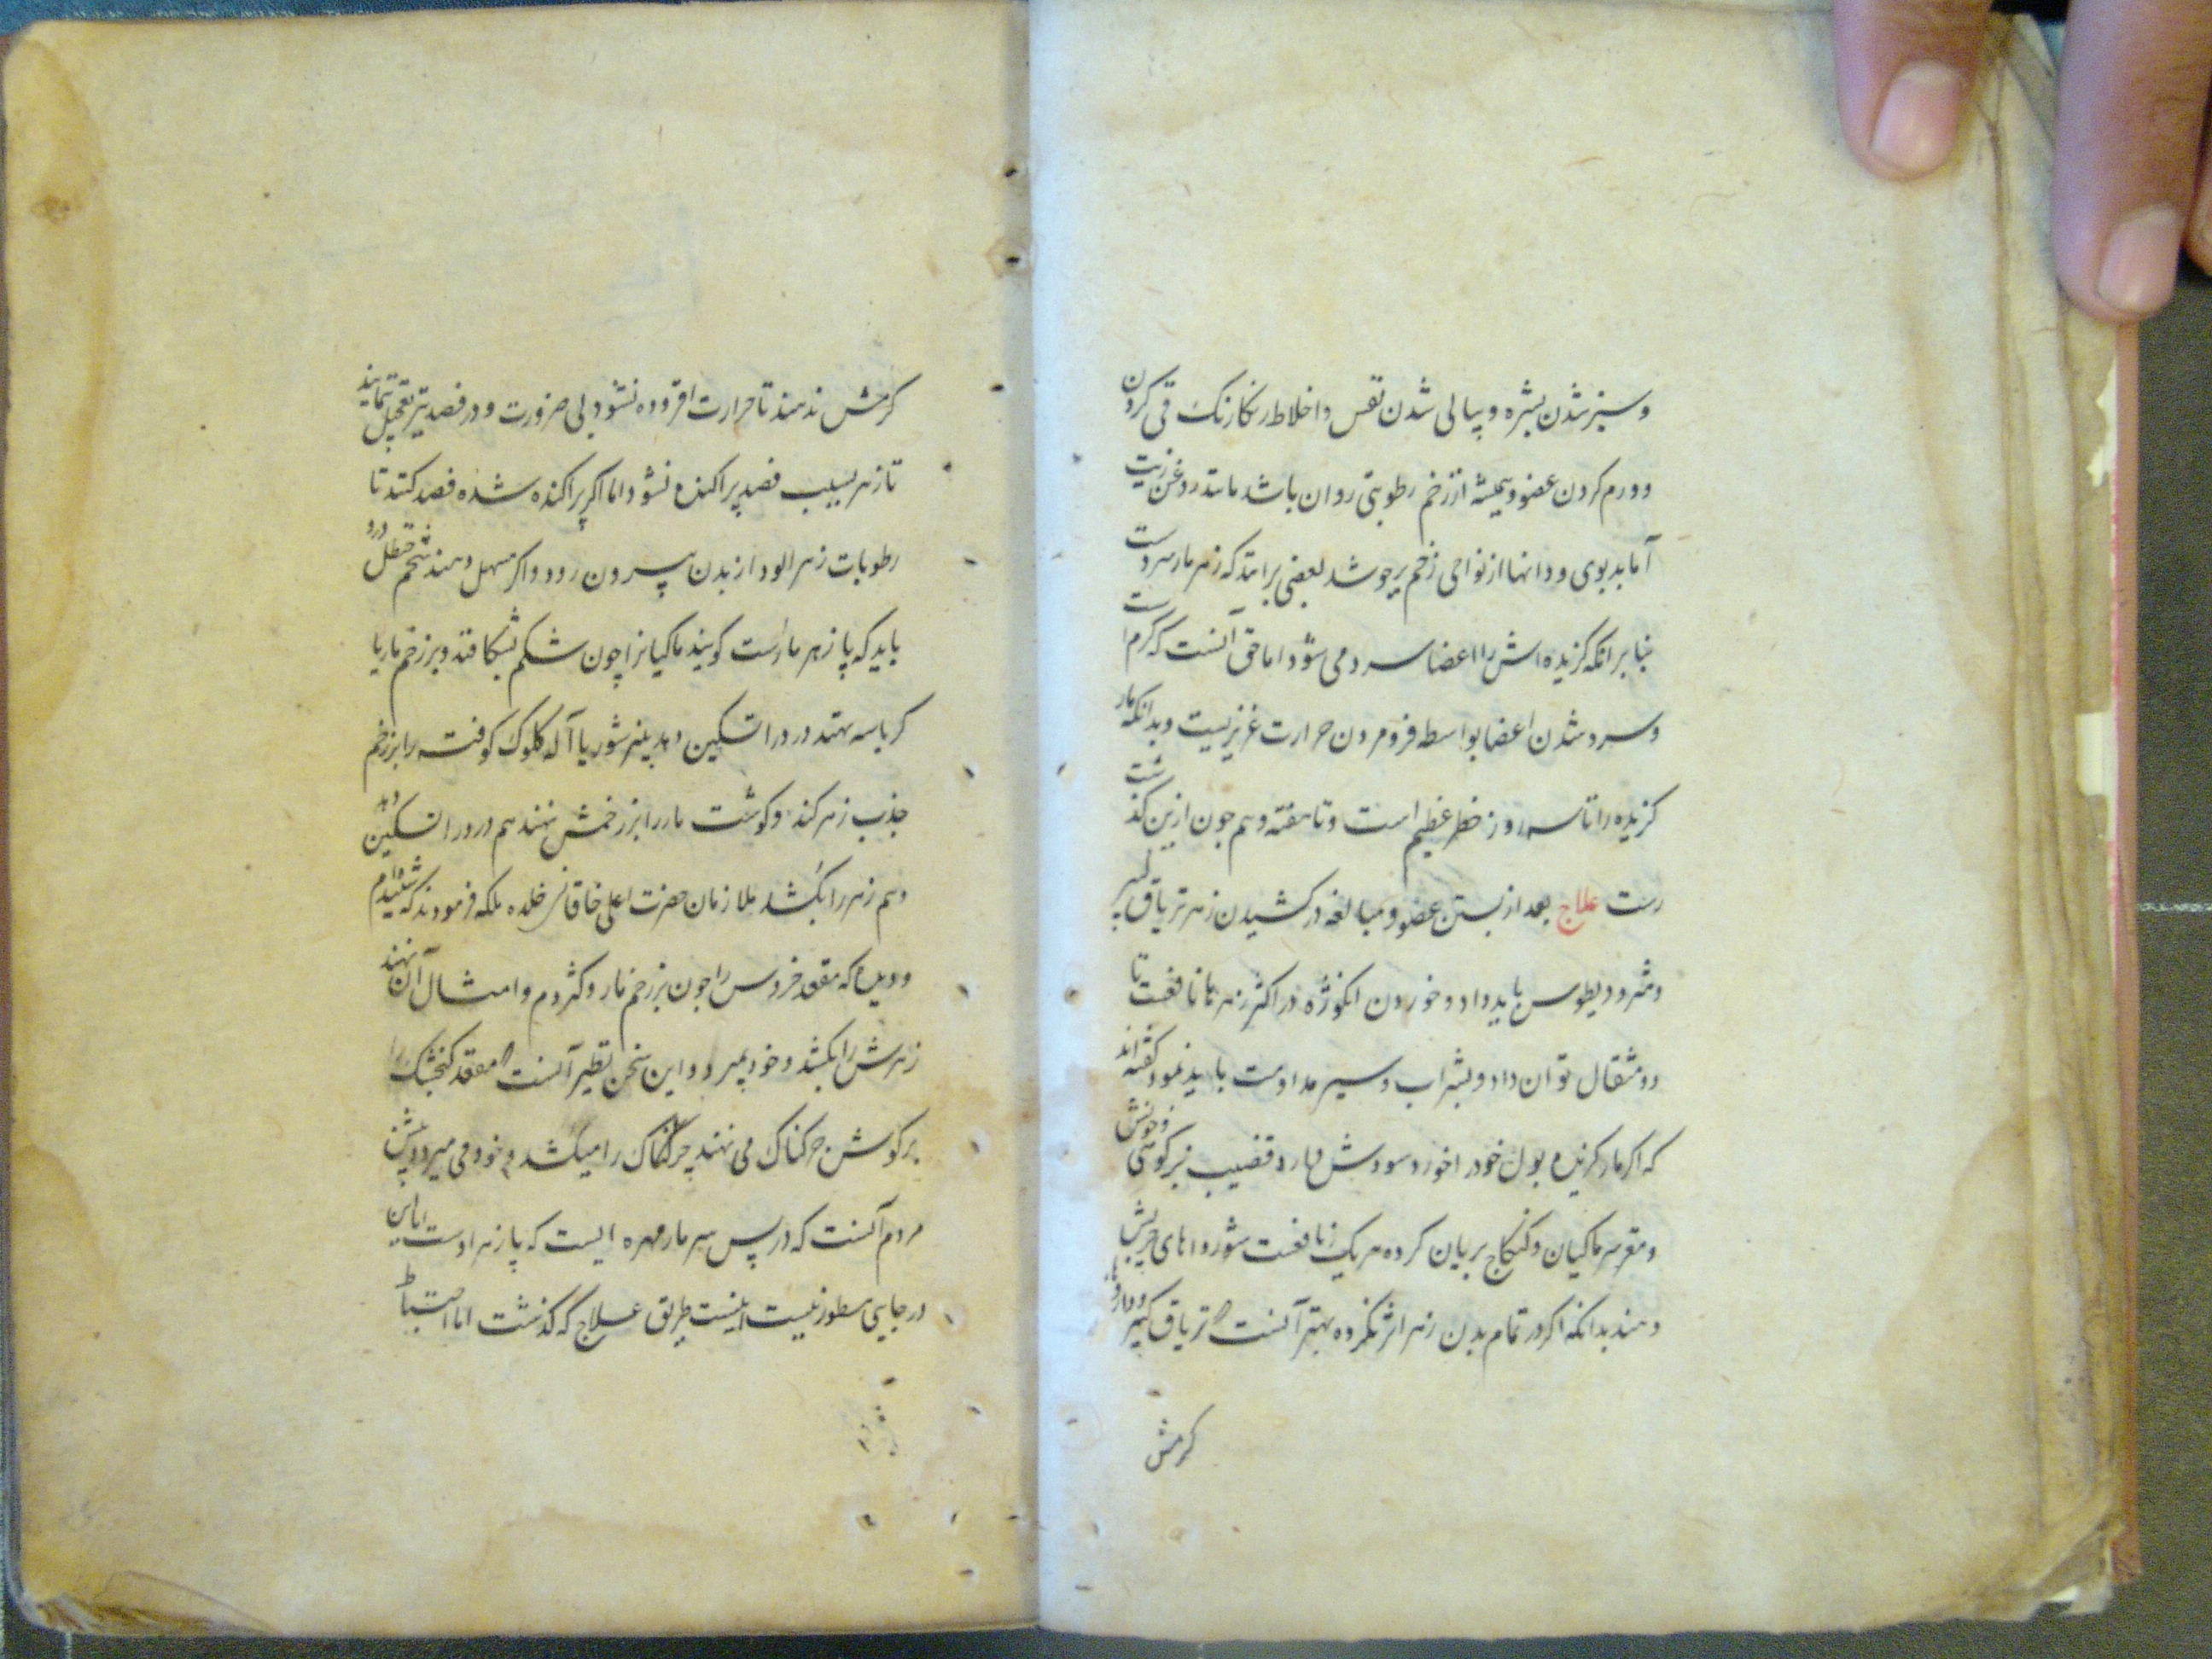 و سبز شدن بشره و پیاپی شدن نفس و اخلاط رنکارنک قی کردن
و ورم کردن عضو و همیشه از زخم رطوبتی روان باشد مانند روغن زیت
اما بدبوی و دانها از نواحی زخم برجوشد بعضی برانند که زهر مار سردست
بنابر انکه کزیده اش را اعضا سرد می شود اما حق آنست که کرم است
و سرد شدن اعضا بواسطه فرو مردن حرارت غریزیست و بدانکه مار
کزیده را تا سه روز خطر عظیم است و تا هفته وهم چون ازین کذشت
رست علاج بعد از بستن عضو و مبالغه در کشیدن زهر تریاق کبیر
و مثرودیطوس باید داد و خوردن انکوزه در اکثر زهرها نافعست تا
دو مثقال توان داد و بشراب و سیر مداومت باید نمود کفته اند
که اکر مار کزیده بول خود را خورد سودش دارد و قضیب بزکوهی و خونش
و مغز سر ماکیان و کنکاج بریان کرده هر یک را نافعست شورواهای چربش
دهند بدانکه اکر در تمام بدن زهر اثر نکرده بهتر آنست که تریاق کبیر و داروها
کرمش
کرمش ندهند تا حرارت افزوده نشود بی ضرورت و در فصد نیز تعجیل ننمایند
تا زهر بسبب فصد پراکنده نشود اما اکر پراکنده شده فصد کنند تا
رطوبات زهر الود از بدن بیرون رود و اکر مسهل دهند شحم حنظل درو
باید که پازهر مارست کویند ماکیانرا چون شکم بشکافند و بر زخم مار یا
کرباسه نهند درد را تسکین دهد پنیر شور یا آلهٔ کلوک کوفته را بر زخم
جذب زهر کند و کوشت مار را بر زخمش نهند هم درد را تسکین دهد
و هم زهر را بکشد ملازمان حضرت اعلی خاقانی خلده ملکه فرمودند که شنیدم
و دیده که مقعد خروس را چون بر زخم مار و کژدم و امثال آن نهند
زهرش را بکشد و خود بمیرد و این سخن نظیر آنست که مقعد کنجشک را
بر کوش می نهند را میکشد و خود می میرد و پیش
مردم آنست که در پس سر مار مهره ایست که پازهر اوست اما این
در جایی مسطور نیست اینست طریق علاج که کذشت اما احتیاط